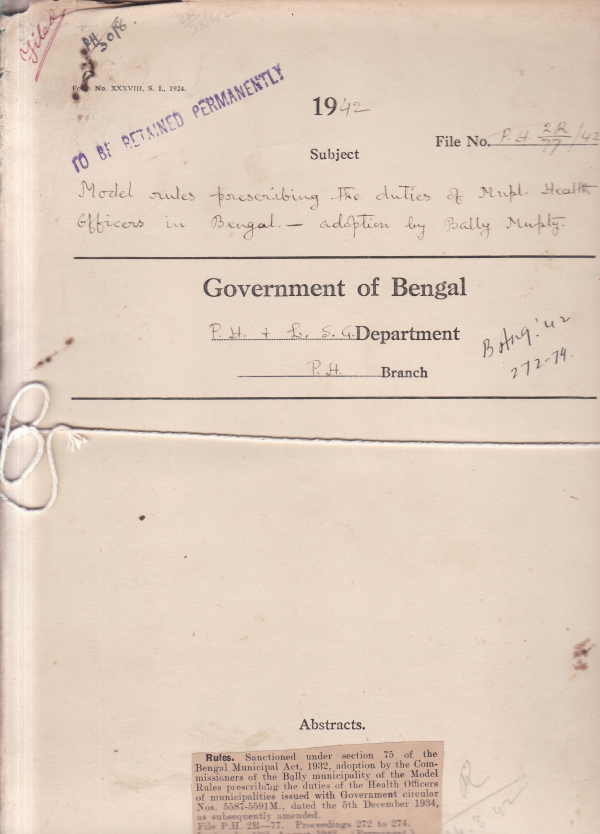 Filed
PH
30/8
No. XXXVIII, S. I., 1924.
TO BE RETAINED PERMANENTLY
1942
File No. P.H. 2R/77/42
Subject
Model rules prescribing the duties of Mupl. Health
Officers in Bengal. — adoption by Bally Muplty.
Government of Bengal
P.H. + L. S. G. Department
P.H. Branch
B Aug. '42
272-74.
Abstracts.
Rules. Sanctioned under section 75 of the
Bengal Municipal Act, 1932, adoption by the Com-
missioners of the Bally municipality of the Model
Rules prescribing the duties of the Health Officers
of municipalities issued with Government circular
Nos. 5587-5591M., dated the 5th December 1934,
as subsequently amended.
File P.H. 2R—77. Proceedings 272 to 274.
R